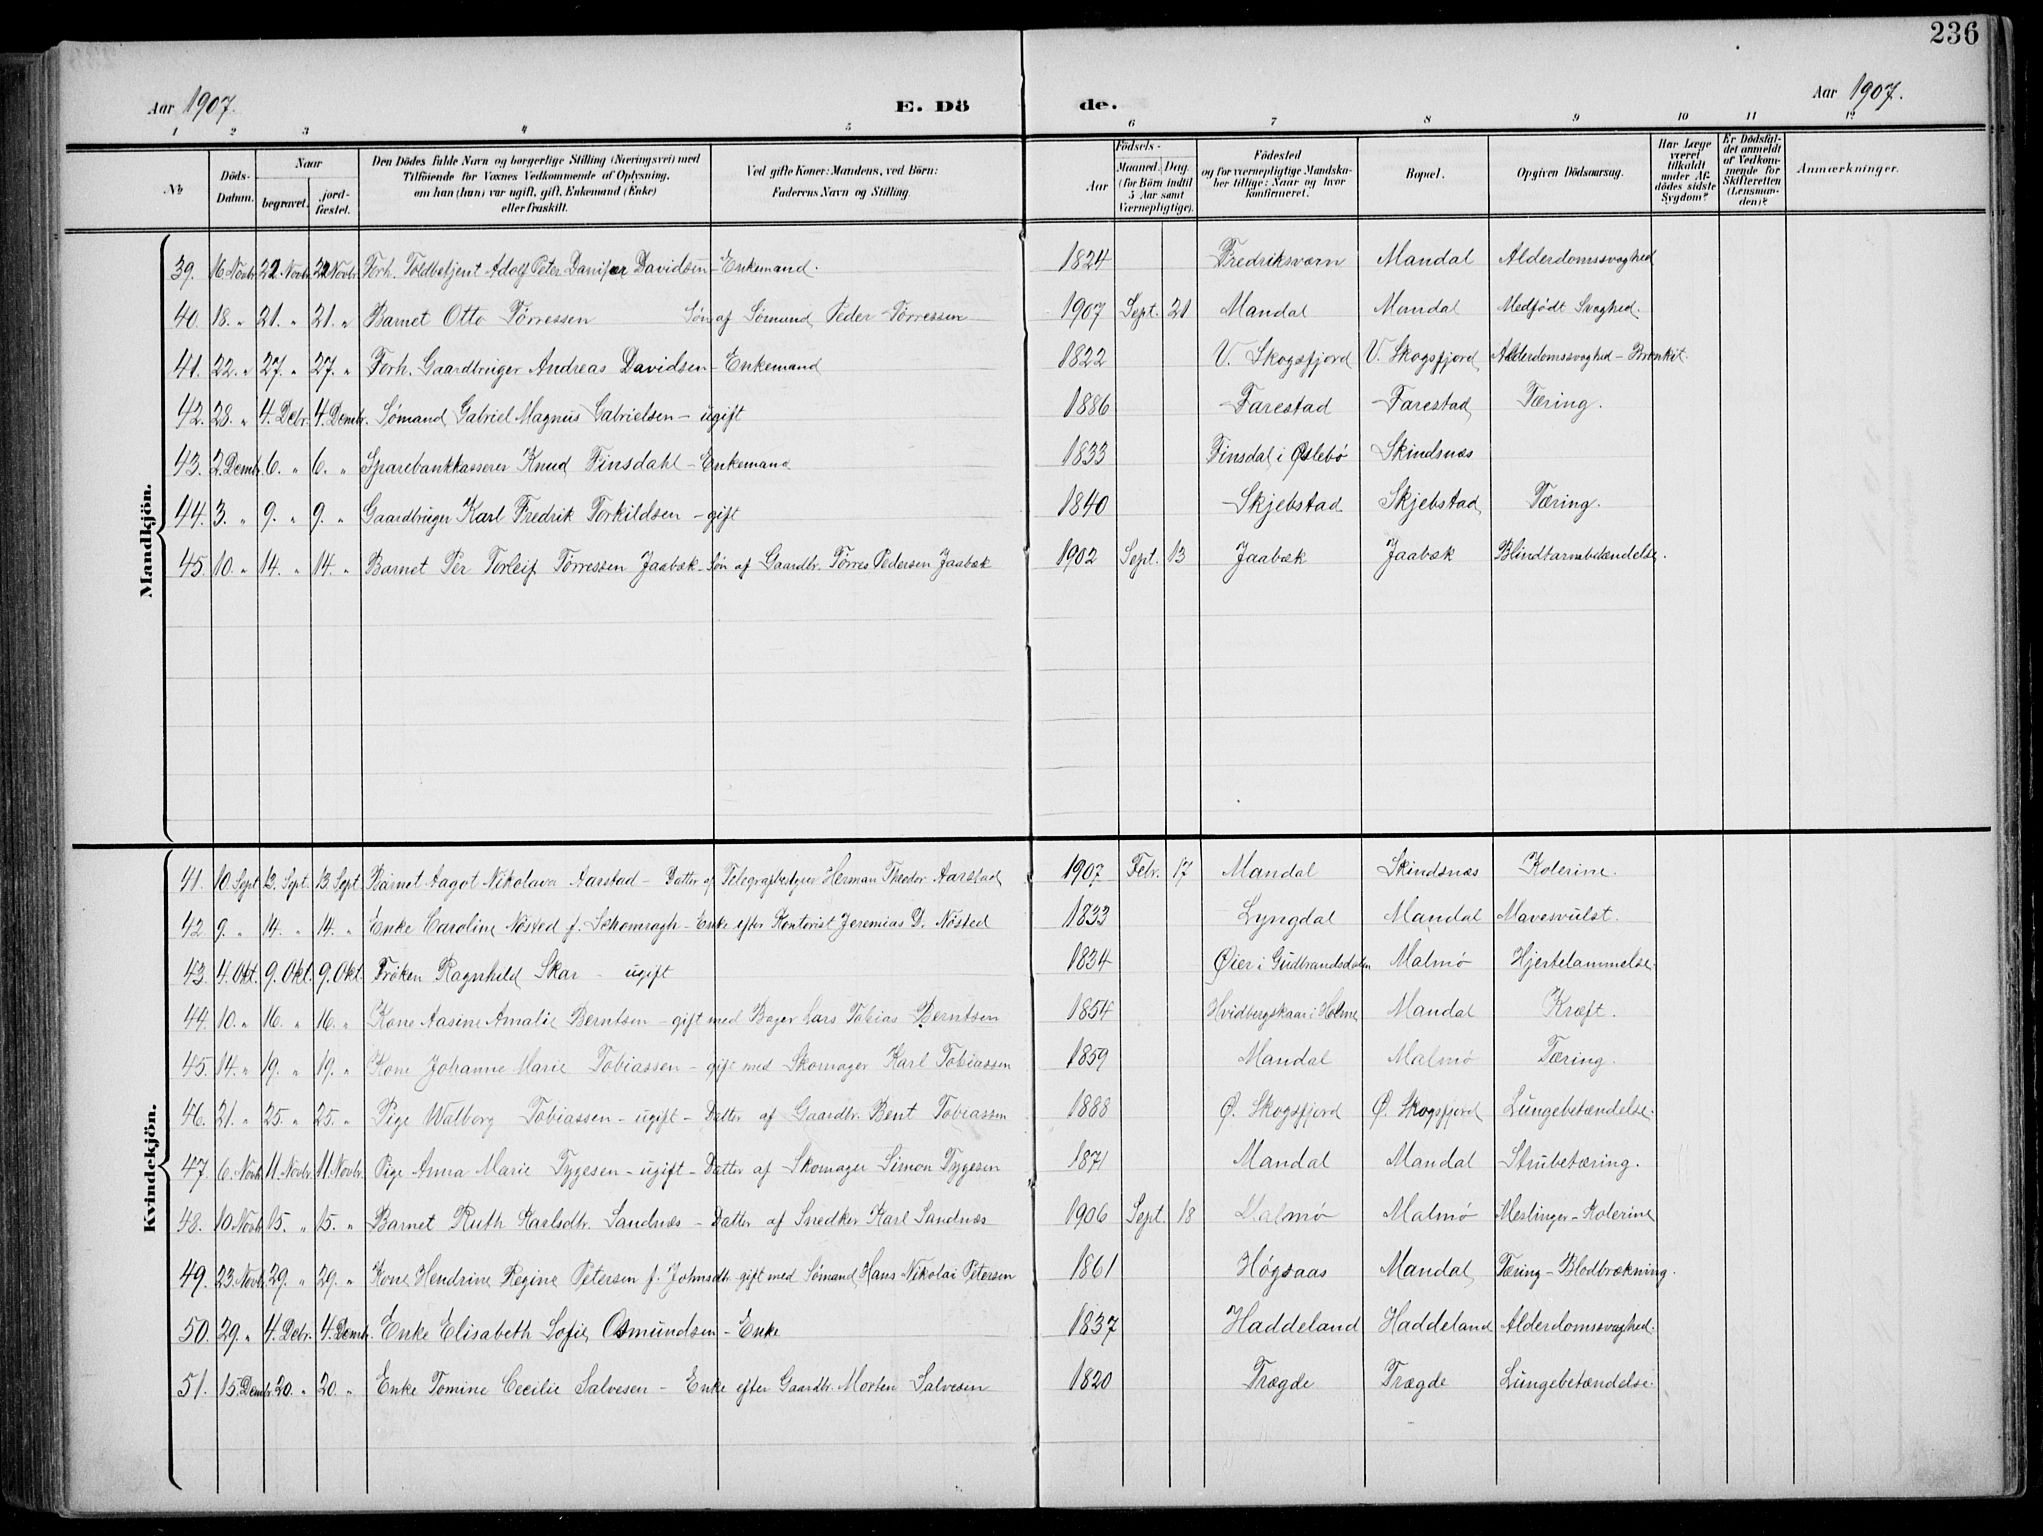 236
Aar 1907.
E. Dö
de.
Aar 1907.
1 2 3 4 5 6 7 8 9 10 11 12
No
Döds-Datum.
Naar
begravet.
jord-fæstet.
Den Dödes fulde Navn og borgerlige Stilling (Næringsvei) med Tilföiende for Voxnes Vedkommende af Oplysning, om han (hun) var ugift, gift, Enkemand (Enke) eller fraskilt.
Ved gifte Koner: Mandens, ved Börn: Faderens Navn og Stilling.
Födsels-
Aar
Maaned. Dag. (for Börn indtil 5 Aar samt Værnepligtige).
Födested og for værnepligtige Mandskaber tillige: Naar og hvor konfirmeret.
Bopæl.
Opgiven Dödsaarsag.
Har Læge været tilkaldt under Afdödes sidste Sygdom?
Er Dödsfaldet anmeldt af Vedkommende for Skifteretten (Lensmanden)?
Anmærkninger.
Mandkjön.
39. 16 Novbr 22. Novbr 22 Novbr Forh. Toldbetjent Adolf Peter Davidsen - Enkemand. 1824 Fredriksværn Mandal Alderdomssvaghed
40. 18. " 21. " 21. " Barnet Otto Tørressen Søn af Sømand Peder Tørressen 1907 Sept. 21 Mandal Mandal Medfødt Svaghed.
41. 22. " 27. " 27. " Forh. Gaardbruger Andreas Davidsen - Enkemand 1822 V. Skogsfjord V. Skogsfjord Alderdomssvaghed - Bronkit.
42. 28. " 4. Debr. 4. Dembr. Sømand Gabriel Magnus Gabrielsen - ugift 1886 Farestad Farestad Tæring.
43. 2. Dembr 6. " 6. " Sparebankkasserer Knud Finsdahl - Enkemand 1833 Finsdal i Øslebø Skindsnæs
44. 3. " 9. " 9. " Gaardbruger Karl Fredrik Torkildsen - gift 1840 Skjebstad Skjebstad Tæring.
45. 10. " 14. " 14. " Barnet Per Torleif Tørressen Jaabæk - Søn af Gaardbr. Tørres Pedersen Jaabæk 1902 Sept. 13 Jaabæk Jaabæk Blindtarmbetændelse.
Kvindekjön.
41. 10 Sept 13. Sept. 13 Sept Barnet Aagot Nikolava Aarstad - Datter af Telegrafbestyrer Herman Theodor Aarstad 1907 Febr. 17 Mandal Skindsnæs Kolerine.
42 9. " 14. " 14. " Enke Caroline Nøsted f. - Enke efter Kontorist Jeremias D. Nøsted 1833 Lyngdal Mandal Mavesvulst.
43. 4. Okt. 9. Okt. 9. Okt. Frøken Ragnhild Skar - ugift 1834 Øier i Gudbrandsdalen Malmø Hjertelammelse.
44. 10. " 16. " 16. " Kone Aasine Amalie Berntsen - gift med Bager Lars Tobias Berntsen 1854 Hvidbergskaar i Holme Mandal Kræft.
45. 14. " 19. " 19. " Kone Johanne Marie Tobiassen - gift med Skomager Karl Tobiassen 1859 Mandal Malmø Tæring.
46. 21. " 25. " 25. " Pige Walborg Tobiassen - ugift - Datter af Gaardbr. Bent Tobiassen 1888 Ø. Skogsfjord Ø. Skogsfjord Lungebetændelse.
47. 6. Novbr 11. Novbr 11. Novbr. Pige Anna Marie Tygesen - ugift - Datter af Skomager Simon Tygesen 1871 Mandal Mandal Strubetæring.
48. 10. Novbr 15. " 15. " Barnet Ruth Karlsdtr. Sandnæs - Datter af Snedker Karl Sandnæs 1906 Sept. 18 Malmø Malmø Meslinger - Kolerine
49. 23. Novbr 29. " 29. " Kone Hendrine Regine Petersen f. Johnsdtr - gift med Sømand Hans Nikolai Petersen 1861 Høgsaas Mandal Tæring - Blodbrækning.
50. 29. " 4. Debr. 4. Dembr. Enke Elisabeth Sofie Osmundsen - Enke 1837 Haddeland Haddeland Alderdomssvaghed.
51. 15. Dembr. 20. " 20. " Enke Tomine Cecilie Salvesen - Enke efter Gaardbr. Morten Salvesen 1820 Trægde Trægde Lungebetændelse.